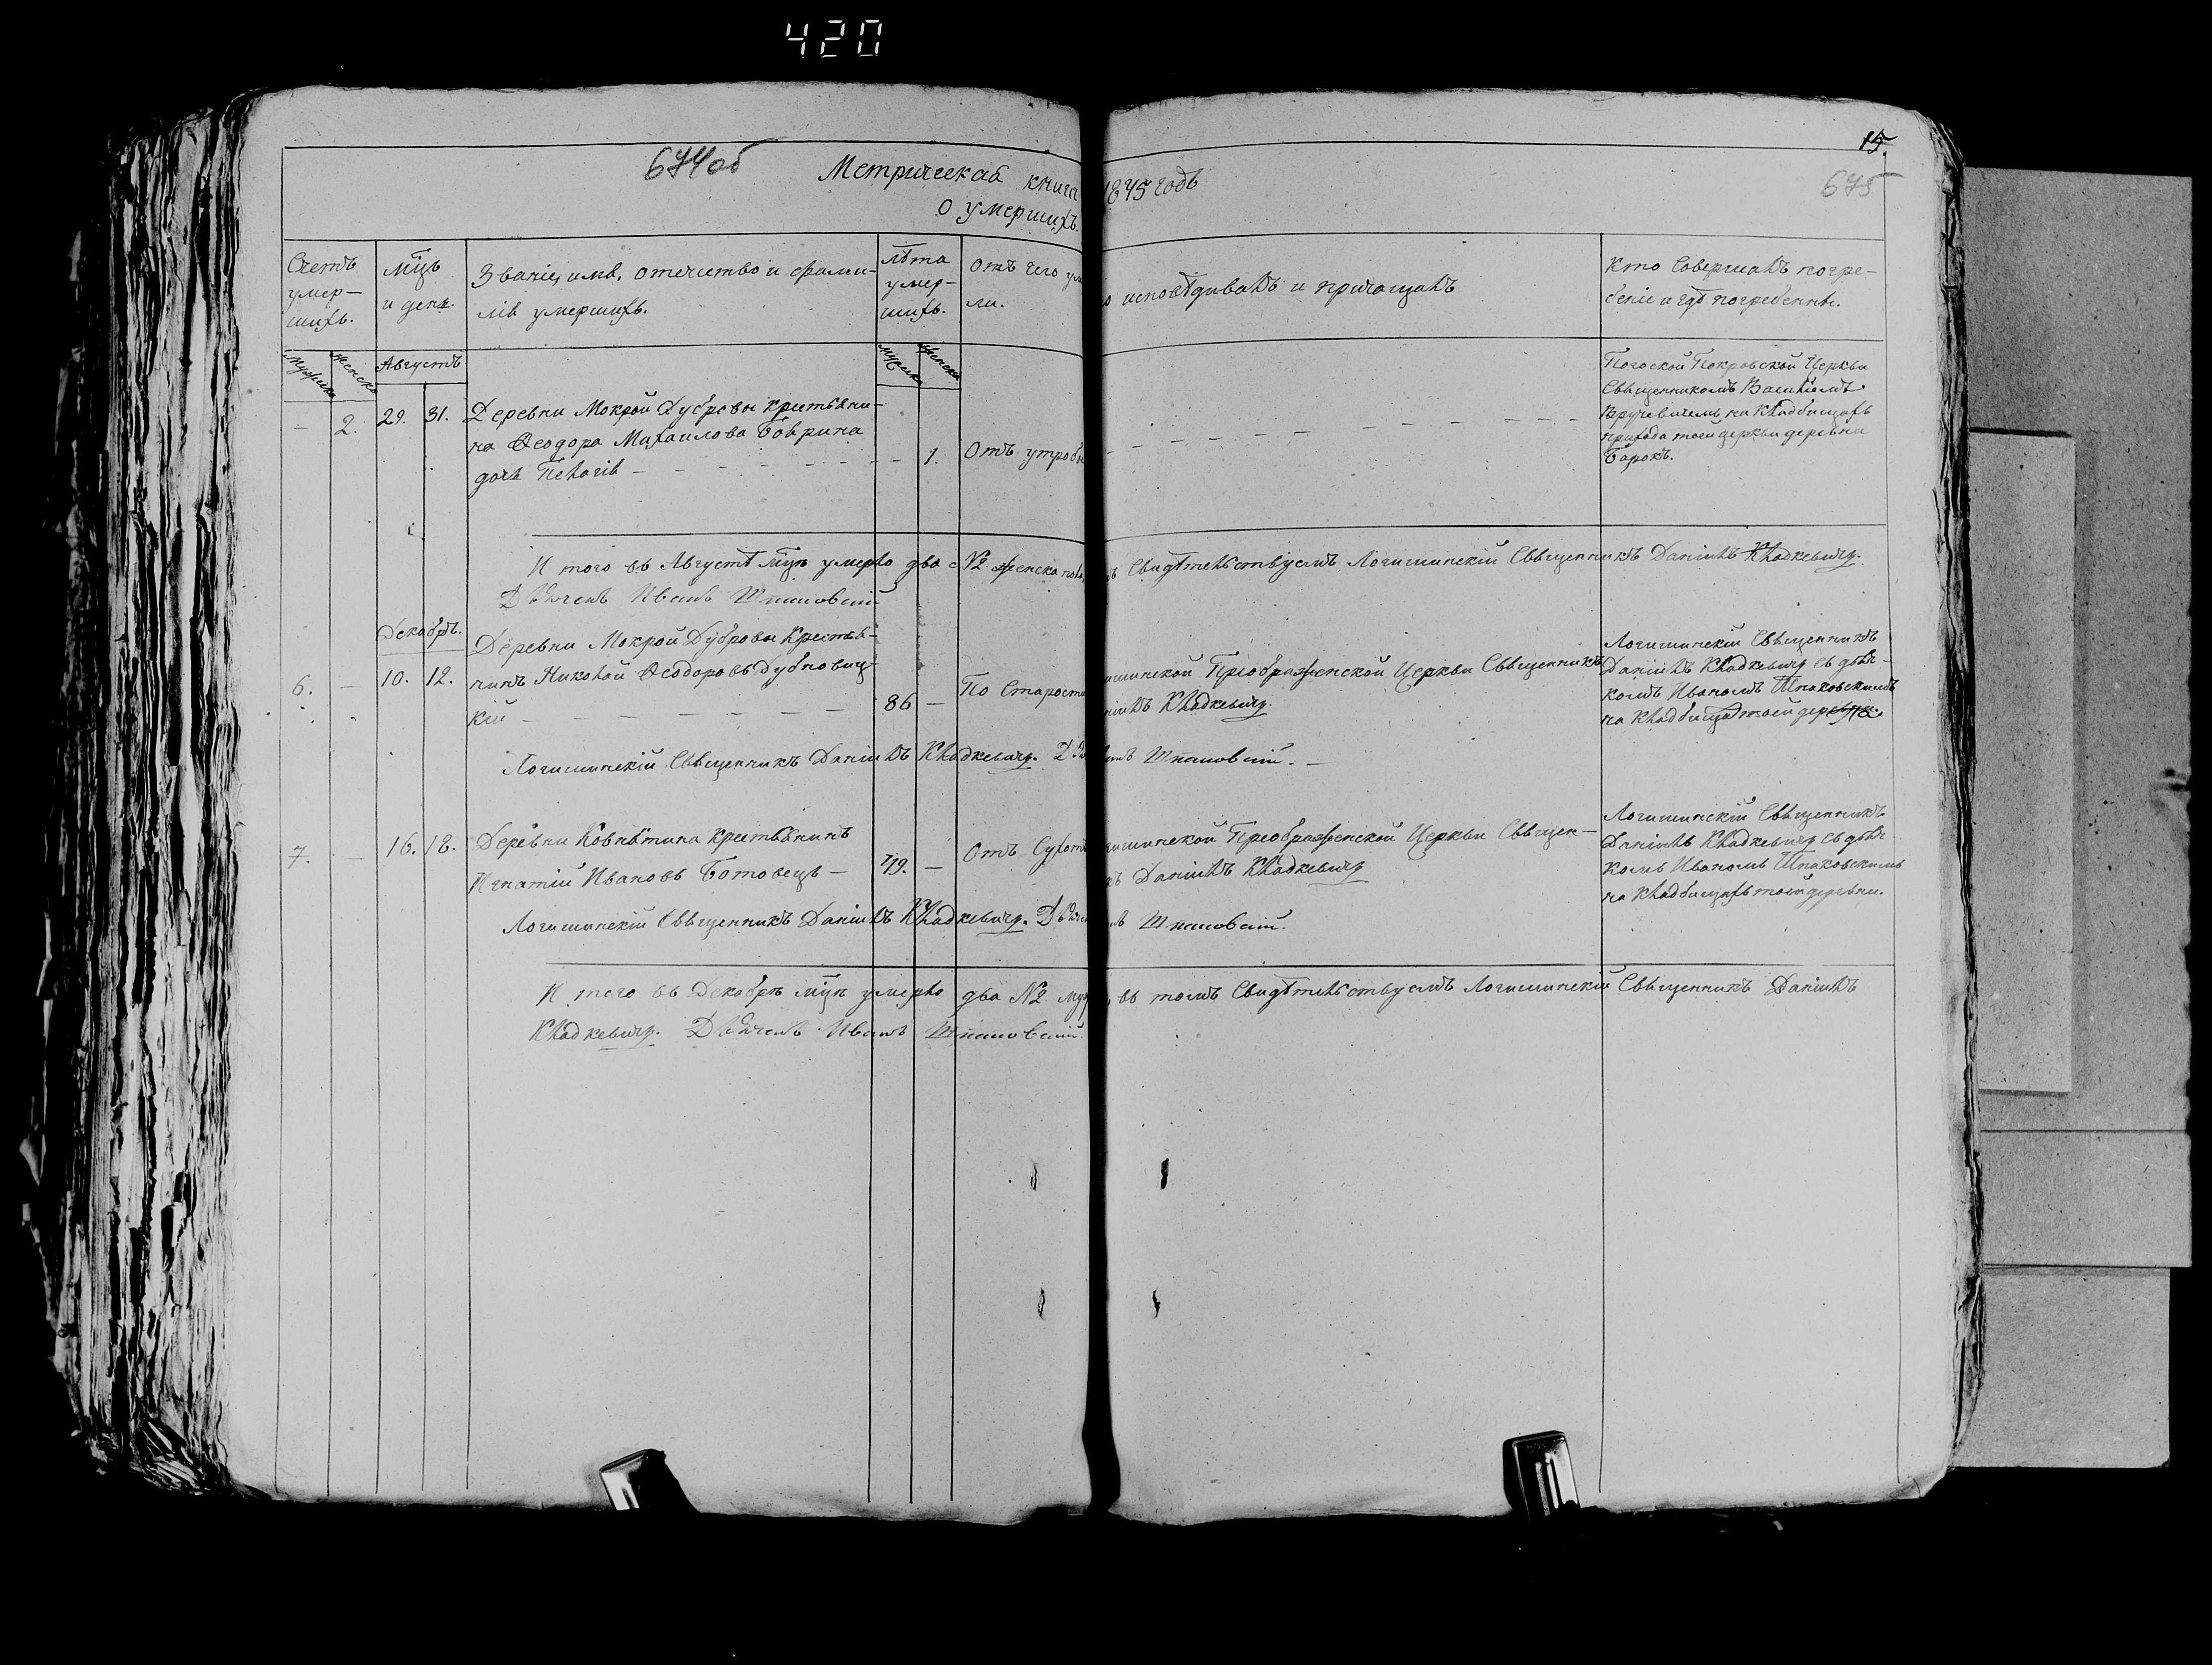 420
15.
674об
675
Метрическая книга 1845 годъ
О умершихъ.
Счетъ умер-
шихъ.
Мцъ
и день.
Званіе, имя, отечество и фами-
лія умершихъ.
Лѣта
умер-
шихъ.
Отъ чего ум
ли.
о исповѣдывалъ и причащалъ
Кто совершалъ погре-
беніе и гдѣ погребенны.
Мужска
Женска
Августъ
Мужска
Женска
— 2. 29. 31.
Деревни Мокрой Дубровы крестьяни-
на Феодора Михаилова Боврина
дочь Пелагія —
— 1. Отъ утробы
Погоской Покровской Церкви
Священникомъ Василіемъ
Кручевичемъ на кладбищахъ
прихода тоей церкви деревни
Борокъ.
И того въ Августѣ мцѣ умерло два №2 женска пола, Свидѣтельствуемъ, Логишинскій Священникъ Даніилъ Хладкевичъ.
Дьячекъ Иванъ Шпаковскій
Декабрь.
6. — 10. 12.
Деревни Мокрой Дубровы Крестья-
нинъ Николай Феодоровъ Дубновиц-
кій —
86 — По Старости
шинской Преображенской Церкви Священникъ
ніилъ Хладкевичъ.
Логишинскій Священникъ
Даніилъ Хладкевичъ съ дьяч-
комъ Иваномъ Шпаковскимъ
на кладбищахъ тоей деревни.
Логишинскій Священникъ Даніилъ Хладкевичъ. Дья Шпаковскій. —
7. — 16. 18.
Деревни Ковнятина крестьянинъ
Игнатій Ивановъ Ботовецъ —
79. — Отъ Сухот
шинской Преображенской Церкви Священ-
къ Даніилъ Хладкевичъ
Логишинскій Священникъ
Даніилъ Хладкевичъ съ дьяч-
комъ Иваномъ Шпаковскимъ
на кладбищахъ тоей деревни.
Логишинскій Священникъ Даніилъ Хладкевичъ. Дьяче Шпаковскій.
И того въ Декабрѣ мцѣ умерло два №2 муж въ томъ Свидѣтельствуемъ Логишинскій Священникъ Даніилъ
Хладкевичъ. Дьячекъ Иванъ Шпаковскій